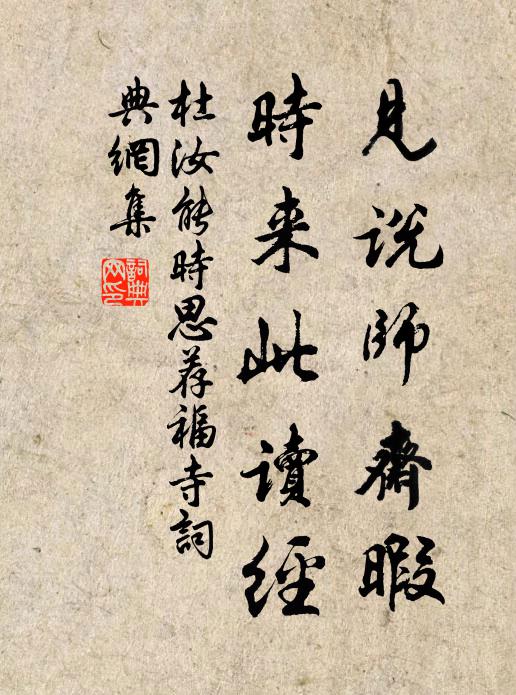 見説師齋暇
時来此讀經
杜汝能時思荐福寺詞
典網集
詞典
网印